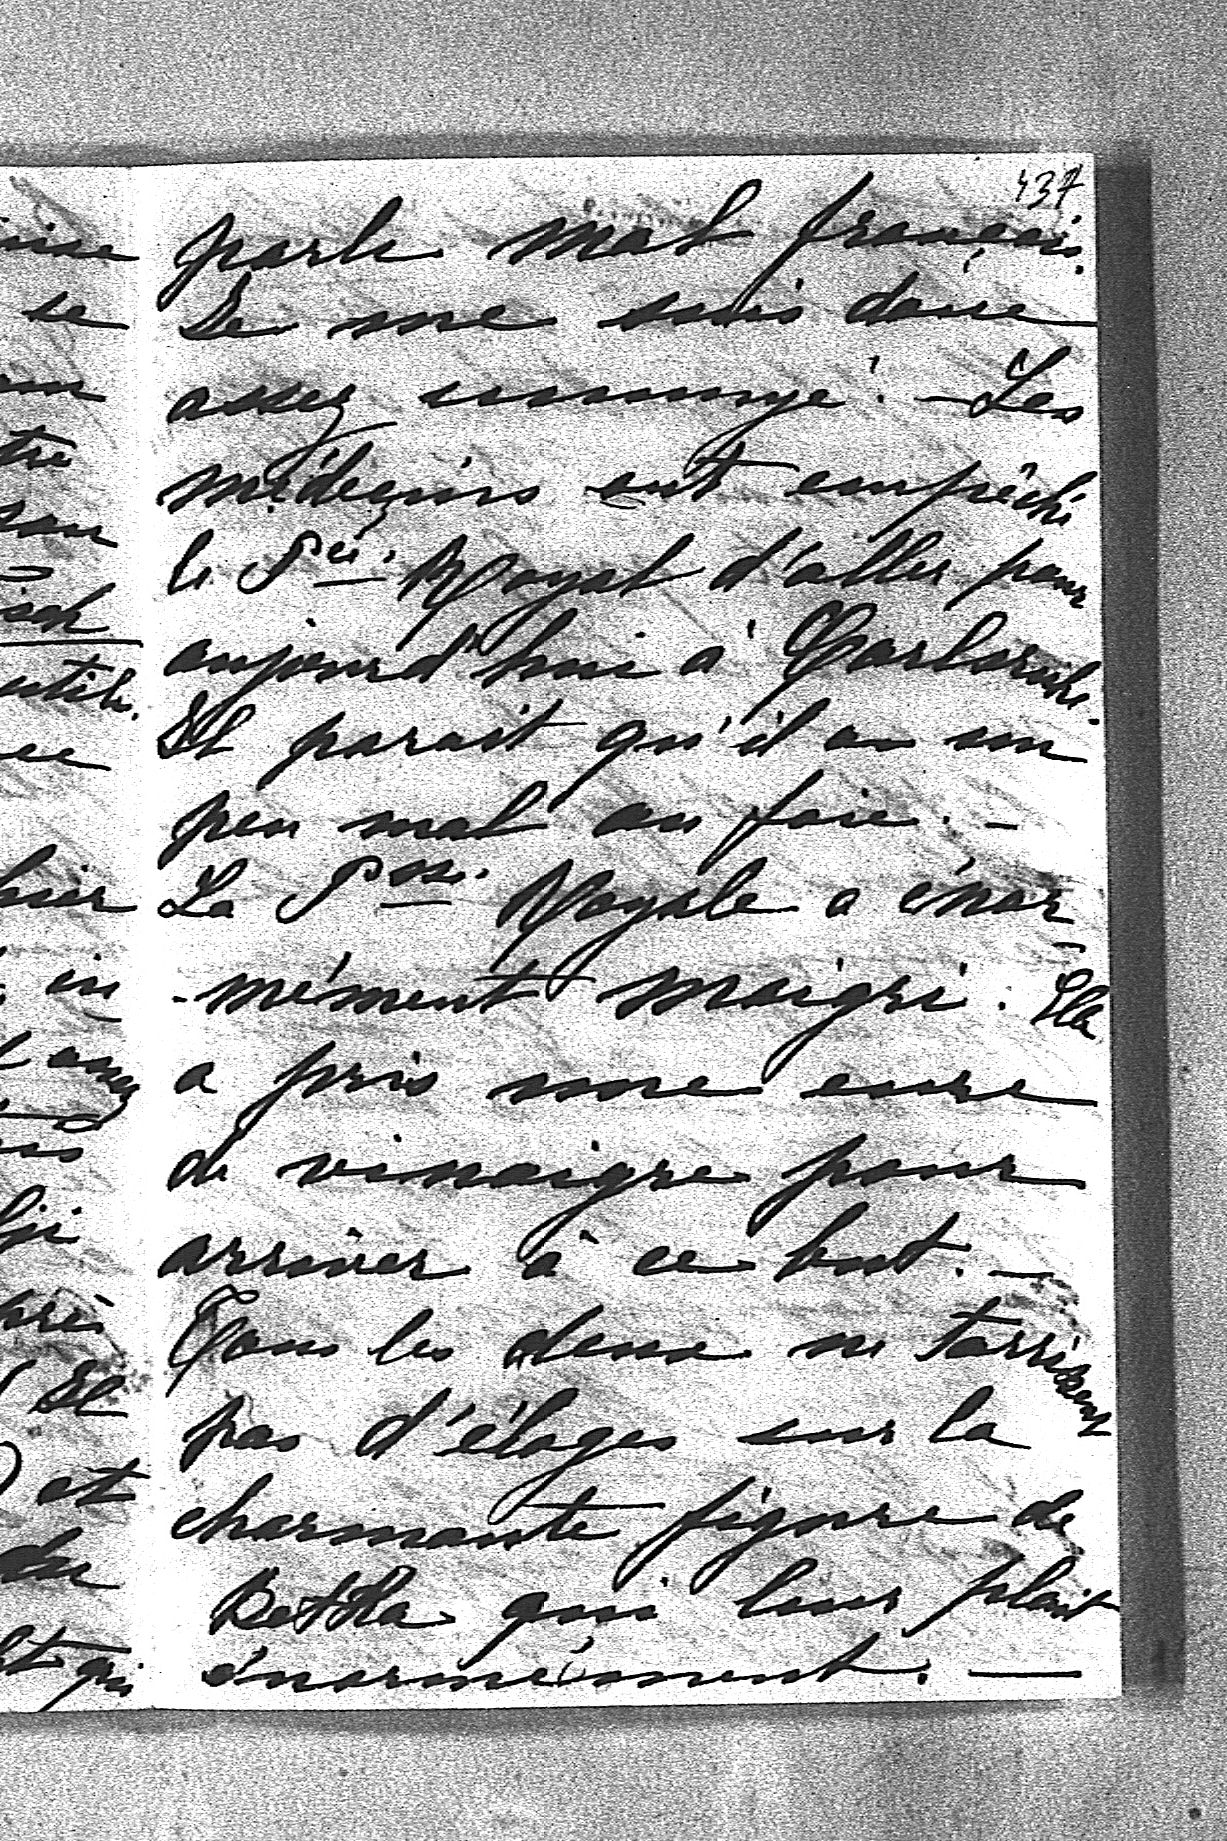 437
parle mal français.
Je me suis donc
assez ennuyé. — Les
médecins ont empêché
le Pce. Royal d'aller pour
aujourd'hui à Carlsruhe.
Il parait qu'il a un
peu mal au foie. —
La Psse. Royale a énor-
-mément maigri. Elle
a pris une cure
de vinaigre pour
arriver à ce but. —
Tous les deux ne tarrissent
pas d'éloges sur la
charmante figure de
qui leur plait
énormément. —